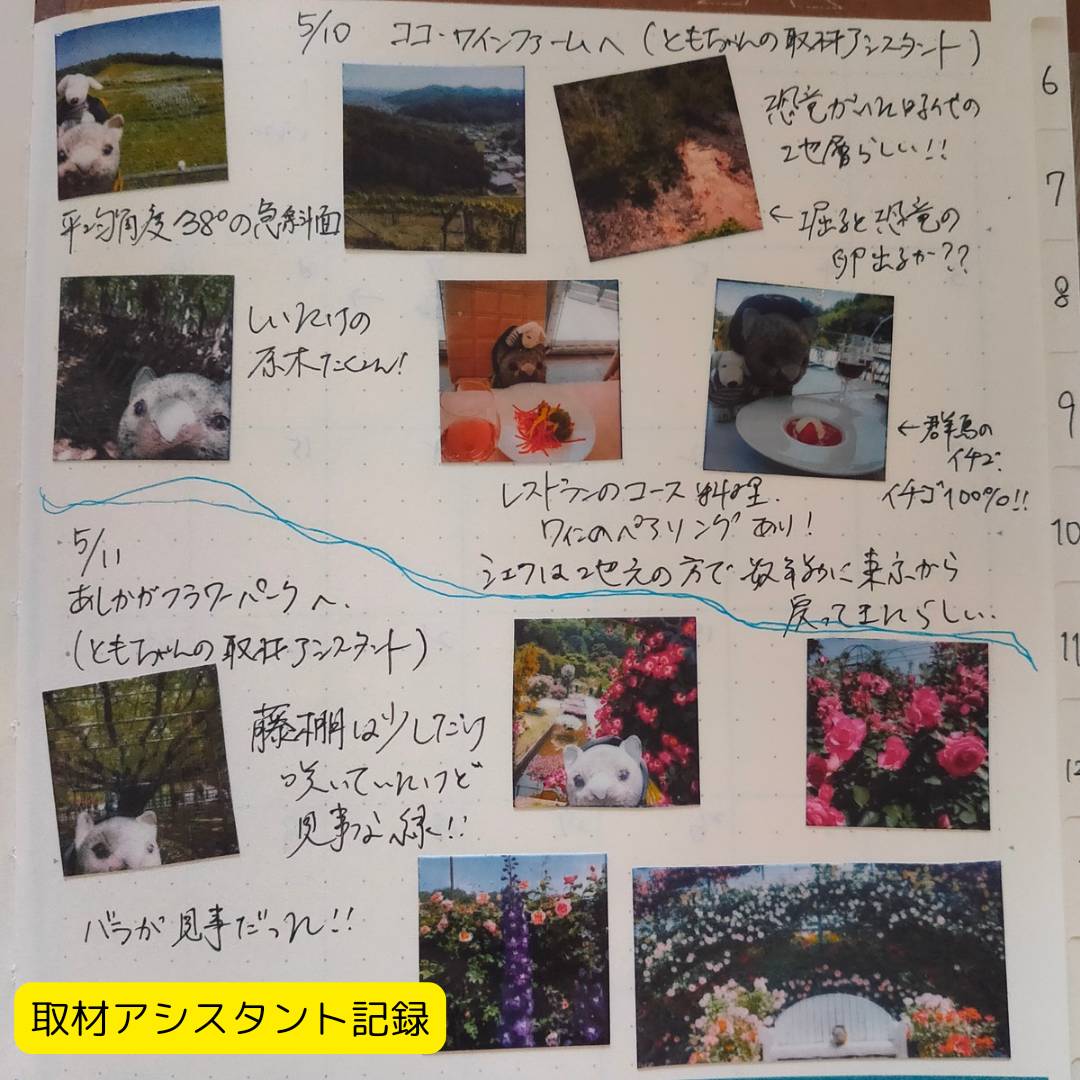 5/10 ココ・ワインファームへ (ともちゃんの取材アシスタント)
恐竜がいた時代の
地層らしい!!
平均角度38°の急斜面
← 掘ると恐竜の
卵出るか??
しいたけの
原木たくさん!
←群馬の
イチゴ.
イチゴ100%!!
レストランのコース料理.
ワインのペアリングあり!
シェフは地元の方で数年前に東京から
戻ってきたらしい.
5/11
あしかがフラワーパークへ.
(ともちゃんの取材アシスタント)
藤棚は少しだけ
咲いていたけど
見事な緑!!
バラが見事だった!!
取材アシスタント記録
6
7
8
9
10
11
12